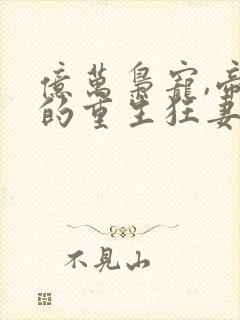 億萬梟寵,帝
的重生狂妻
不見山